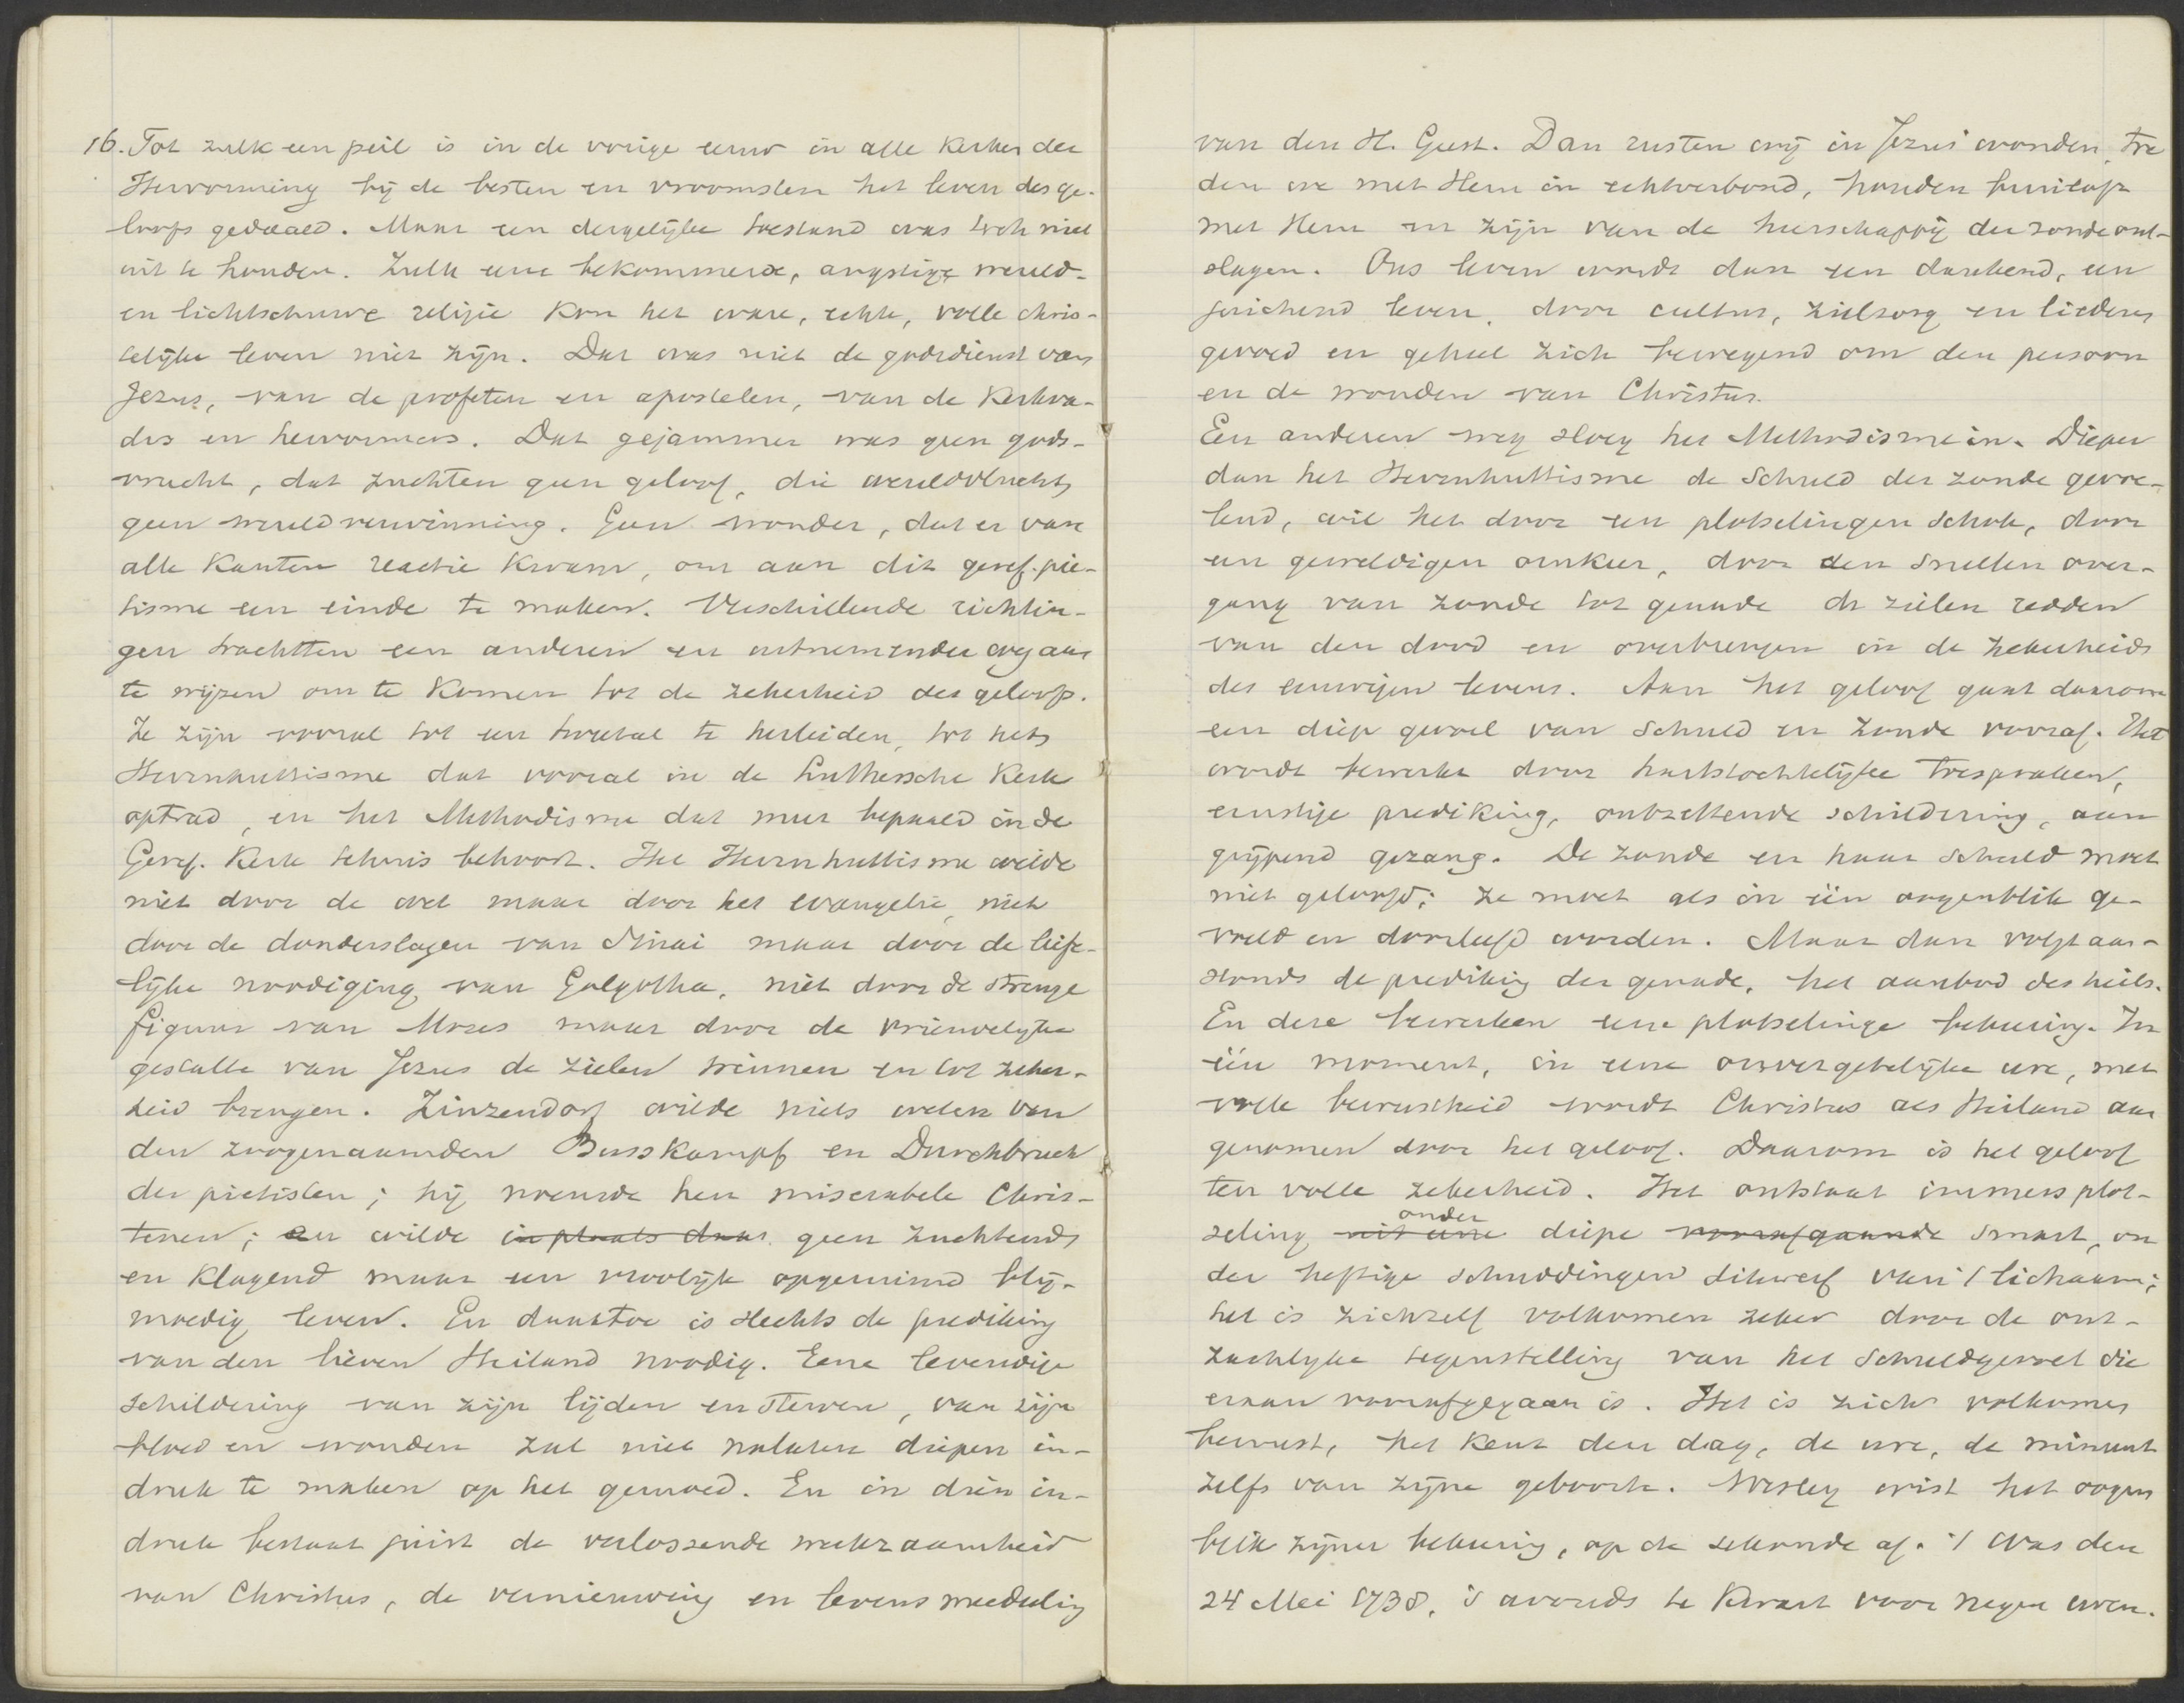 16. Tot zulk een peil is in de vorige eeuw in alle Kerken der
Hervorming bij de besten en vroomsten het leven des ge-
loofs gedaald. Maar een dergelijke toestand was toch niet
uit te houden. Zulk eene bekommerde, angstige, wereld-
en lichtschuwe religie kon het ware, echte, volle chris-
telijke leven niet zijn. Dat was niet de godsdienst van
Jezus, van de profeten en apostelen, van de Kerkva-
ders en hervormers. Dat gejammer was geen gods-
vrucht, dat zuchten geen geloof, die wereldvlucht
geen wereldverwinning. Geen wonder, dat er van
alle Kanten reactie kwam, om aan dit geref. pie-
tisme een einde te maken. Verschillende richtin-
gen trachtten een anderen en uitnemender weg aan
te wijzen om te komen tot de zekerheid des geloofs.
Ze zijn vooral tot een tweetal te herleiden, tot het
Hernhuttisme dat vooral in de Luthersche Kerk
optrad, en het Methodisme dat meer bepaald in de
Geref. Kerk tehuis behoort. Het Hernhuttisme wilde
niet door de wet maar door het evangelie, niet
door de donderslagen van Sinai maar door de liefe-
lijke noodiging van Golgotha, niet door de strenge
figuur van Mozes maar door de vriendelijke
gestalte van Jezus de zielen winnen en tot zeker-
heid brengen. Zinzendorf wilde niets weten van
den zoogenaamden Busskampf en Durchbruch
der pietisten; hij noemde hen miserabele Chris-
tenen; en wilde in plaats daar geen zuchtend
en klagend maar een vroolijk opgeruimd blij-
moedig leven. En daartoe is slechts de prediking
van den lieven Heiland noodig. Eene levendige
schildering van zijn lijden en sterven, van zijn
bloed en wonden zal niet nalaten diepen in-
druk te maken op het gemoed. En in dien in-
druk bestaat juist de verlossende werkzaamheid
van Christus, de vernieuwing en levensmeedeeling
van den H. Geest. Dan rusten wij in Jezus' wonden, tre
den we met Hem in echtverbond, houden bruiloft
met Hem en zijn van de heerschappij der zonde ont-
slagen. Ons leven wordt dan een dankend, een
juichend leven, door cultus, zielzorg en liederen
gevoed en geheel zich bewegend om den persoon
en de wonden van Christus.
Een anderen weg sloeg het Methodisme in. Dieper
dan het Hernhuttisme de schuld der zonde gevoe-
lend, wil het door een plotselingen schok, door
een geweldigen omkeer, door den snellen over-
gang van zonde tot genade de zielen redden
van den dood en overbrengen in de zekerheid
des eeuwigen levens. Aan het geloof gaat daarom
een diep gevoel van schuld en zonde vooraf. Het
wordt bewerkt door hartstochtelijke toespraken,
ernstige prediking, ontzettende schildering, aan
grijpend gezang. De zonde en haar schuld moet
niet geloofd; ze moet als in één oogenblik ge-
voeld en doorleefd worden. Maar dan volgt aan-
stonds de prediking der genade, het aanbod des heils.
En deze bewerken eene plotselinge bekeering. In
één moment, in eene onvergetelijke ure, met
volle bewustheid wordt Christus als Heiland aan
genomen door het geloof. Daarom is het geloof
ten volle zekerheid. Het ontstaat immers plot-
seling uit eene onder diepe voorafgaande smart, on
der heftige schuddingen dikwerf van 't lichaam;
het is zichzelf volkomen zeker door de ont-
zachlijke tegenstelling van het schuldgevoel die
eraan voorafgegaan is. Het is zich volkomen
bewust, het kent den dag, de ure, de minuut
zelfs van zijne geboorte. Wesley wist het oogen
blik zijner bekeering, op de sekonde af. 't Was den
24 Mei 1738, 's avonds te kwart voor negen uren.